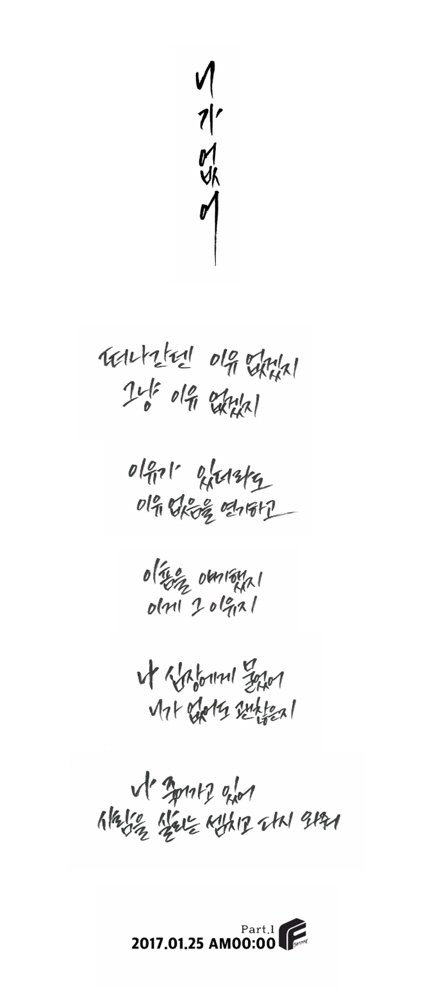 니가 없어
떠나간텐 이유 없겠지
그냥 이유 없겠지
이유가 있더라도
이유 없음을 연기하고
아픔을 얘기했지
이게 그 이유지
나 심장에게 물었어
니가 없어도 괜찮은지
나 죽어가고 있어
사람을 살리는 셈치고 다시 와줘
Part.1
2017.01.25 AM00:00